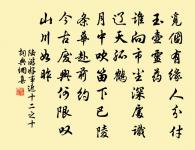 覓個有緣人分付
玉壺靈藥
誰向市塵深處識
遼天孤鶴
月中吹笛下巴陵
條華赴前約
今古廢興何限嘆
山川如昨
陸游好事近十二之十
詞典網集